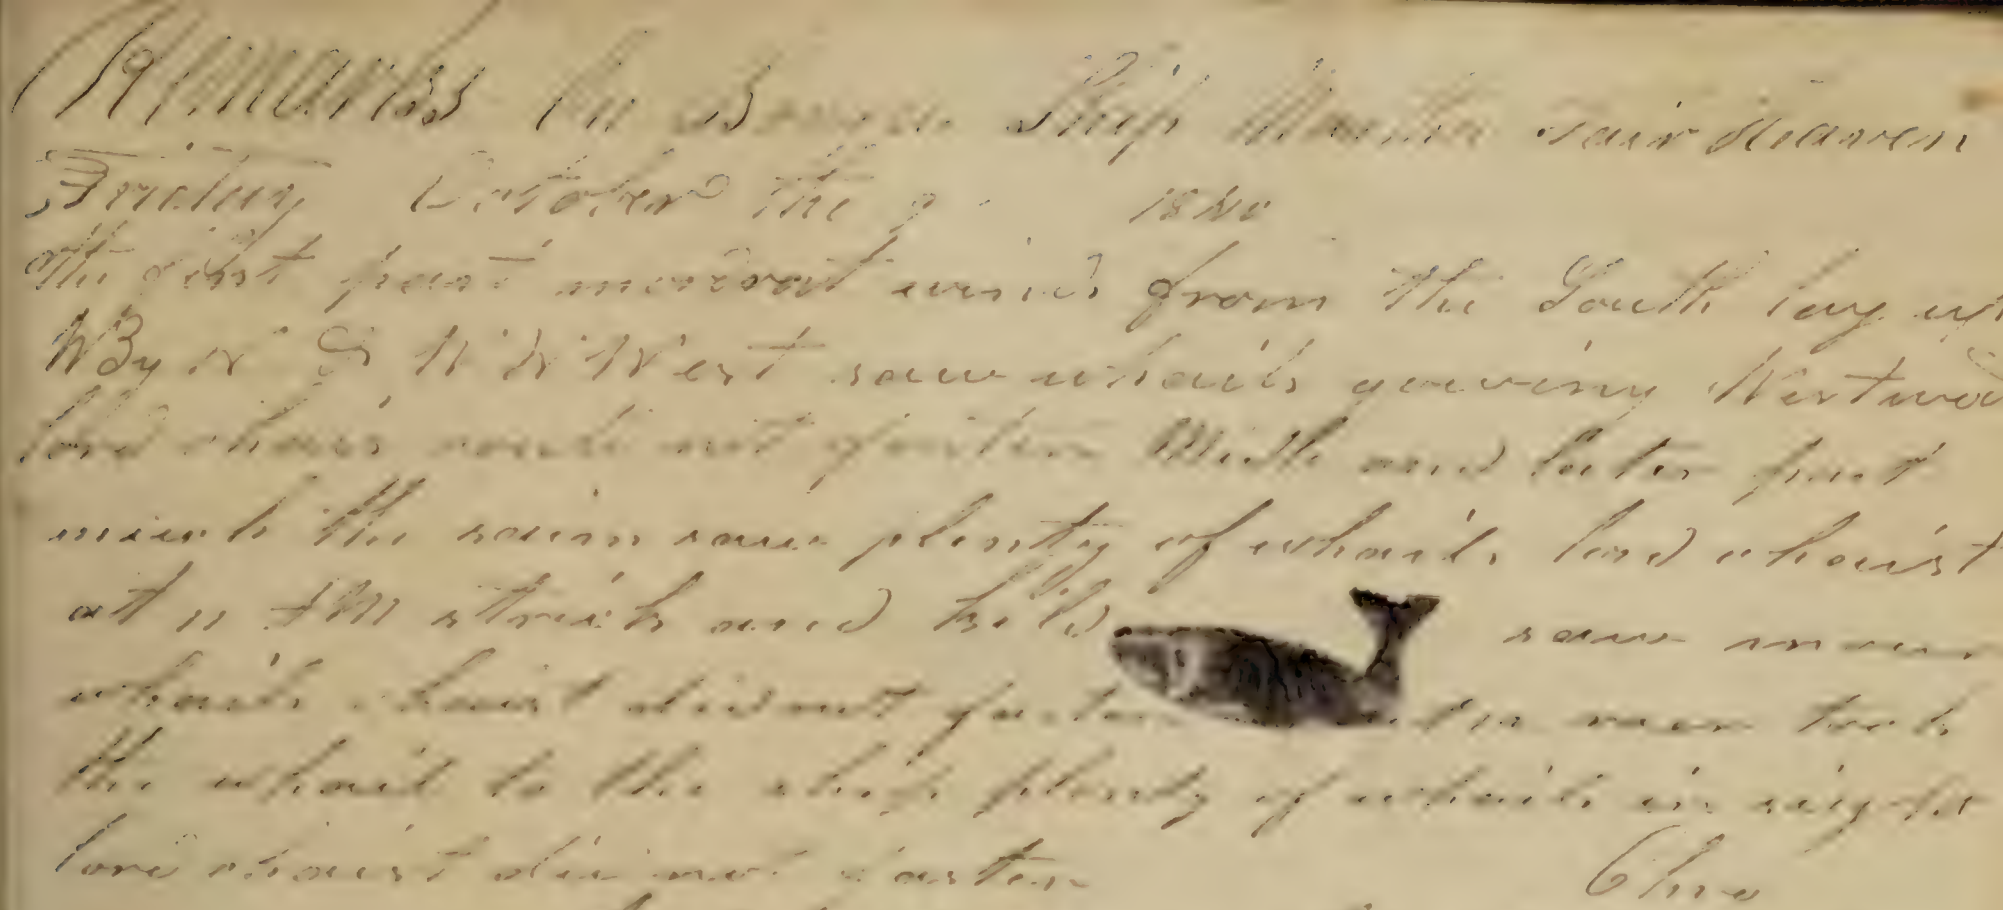 Remarks on board Ship Fairhaven
Friday October the 9 1840
the first part moderat wind from the South lay up
W By N & W N West saw whails gowing Westwad
lord chais could not fasten Midle and later part
much the saim saw plenty of whails lord chaist
at 11 AM struck and kild saw more
whails chaist did not fasten at noon took
the whail to the ship plenty of whails in sight
lord chaist did not fasten Chro